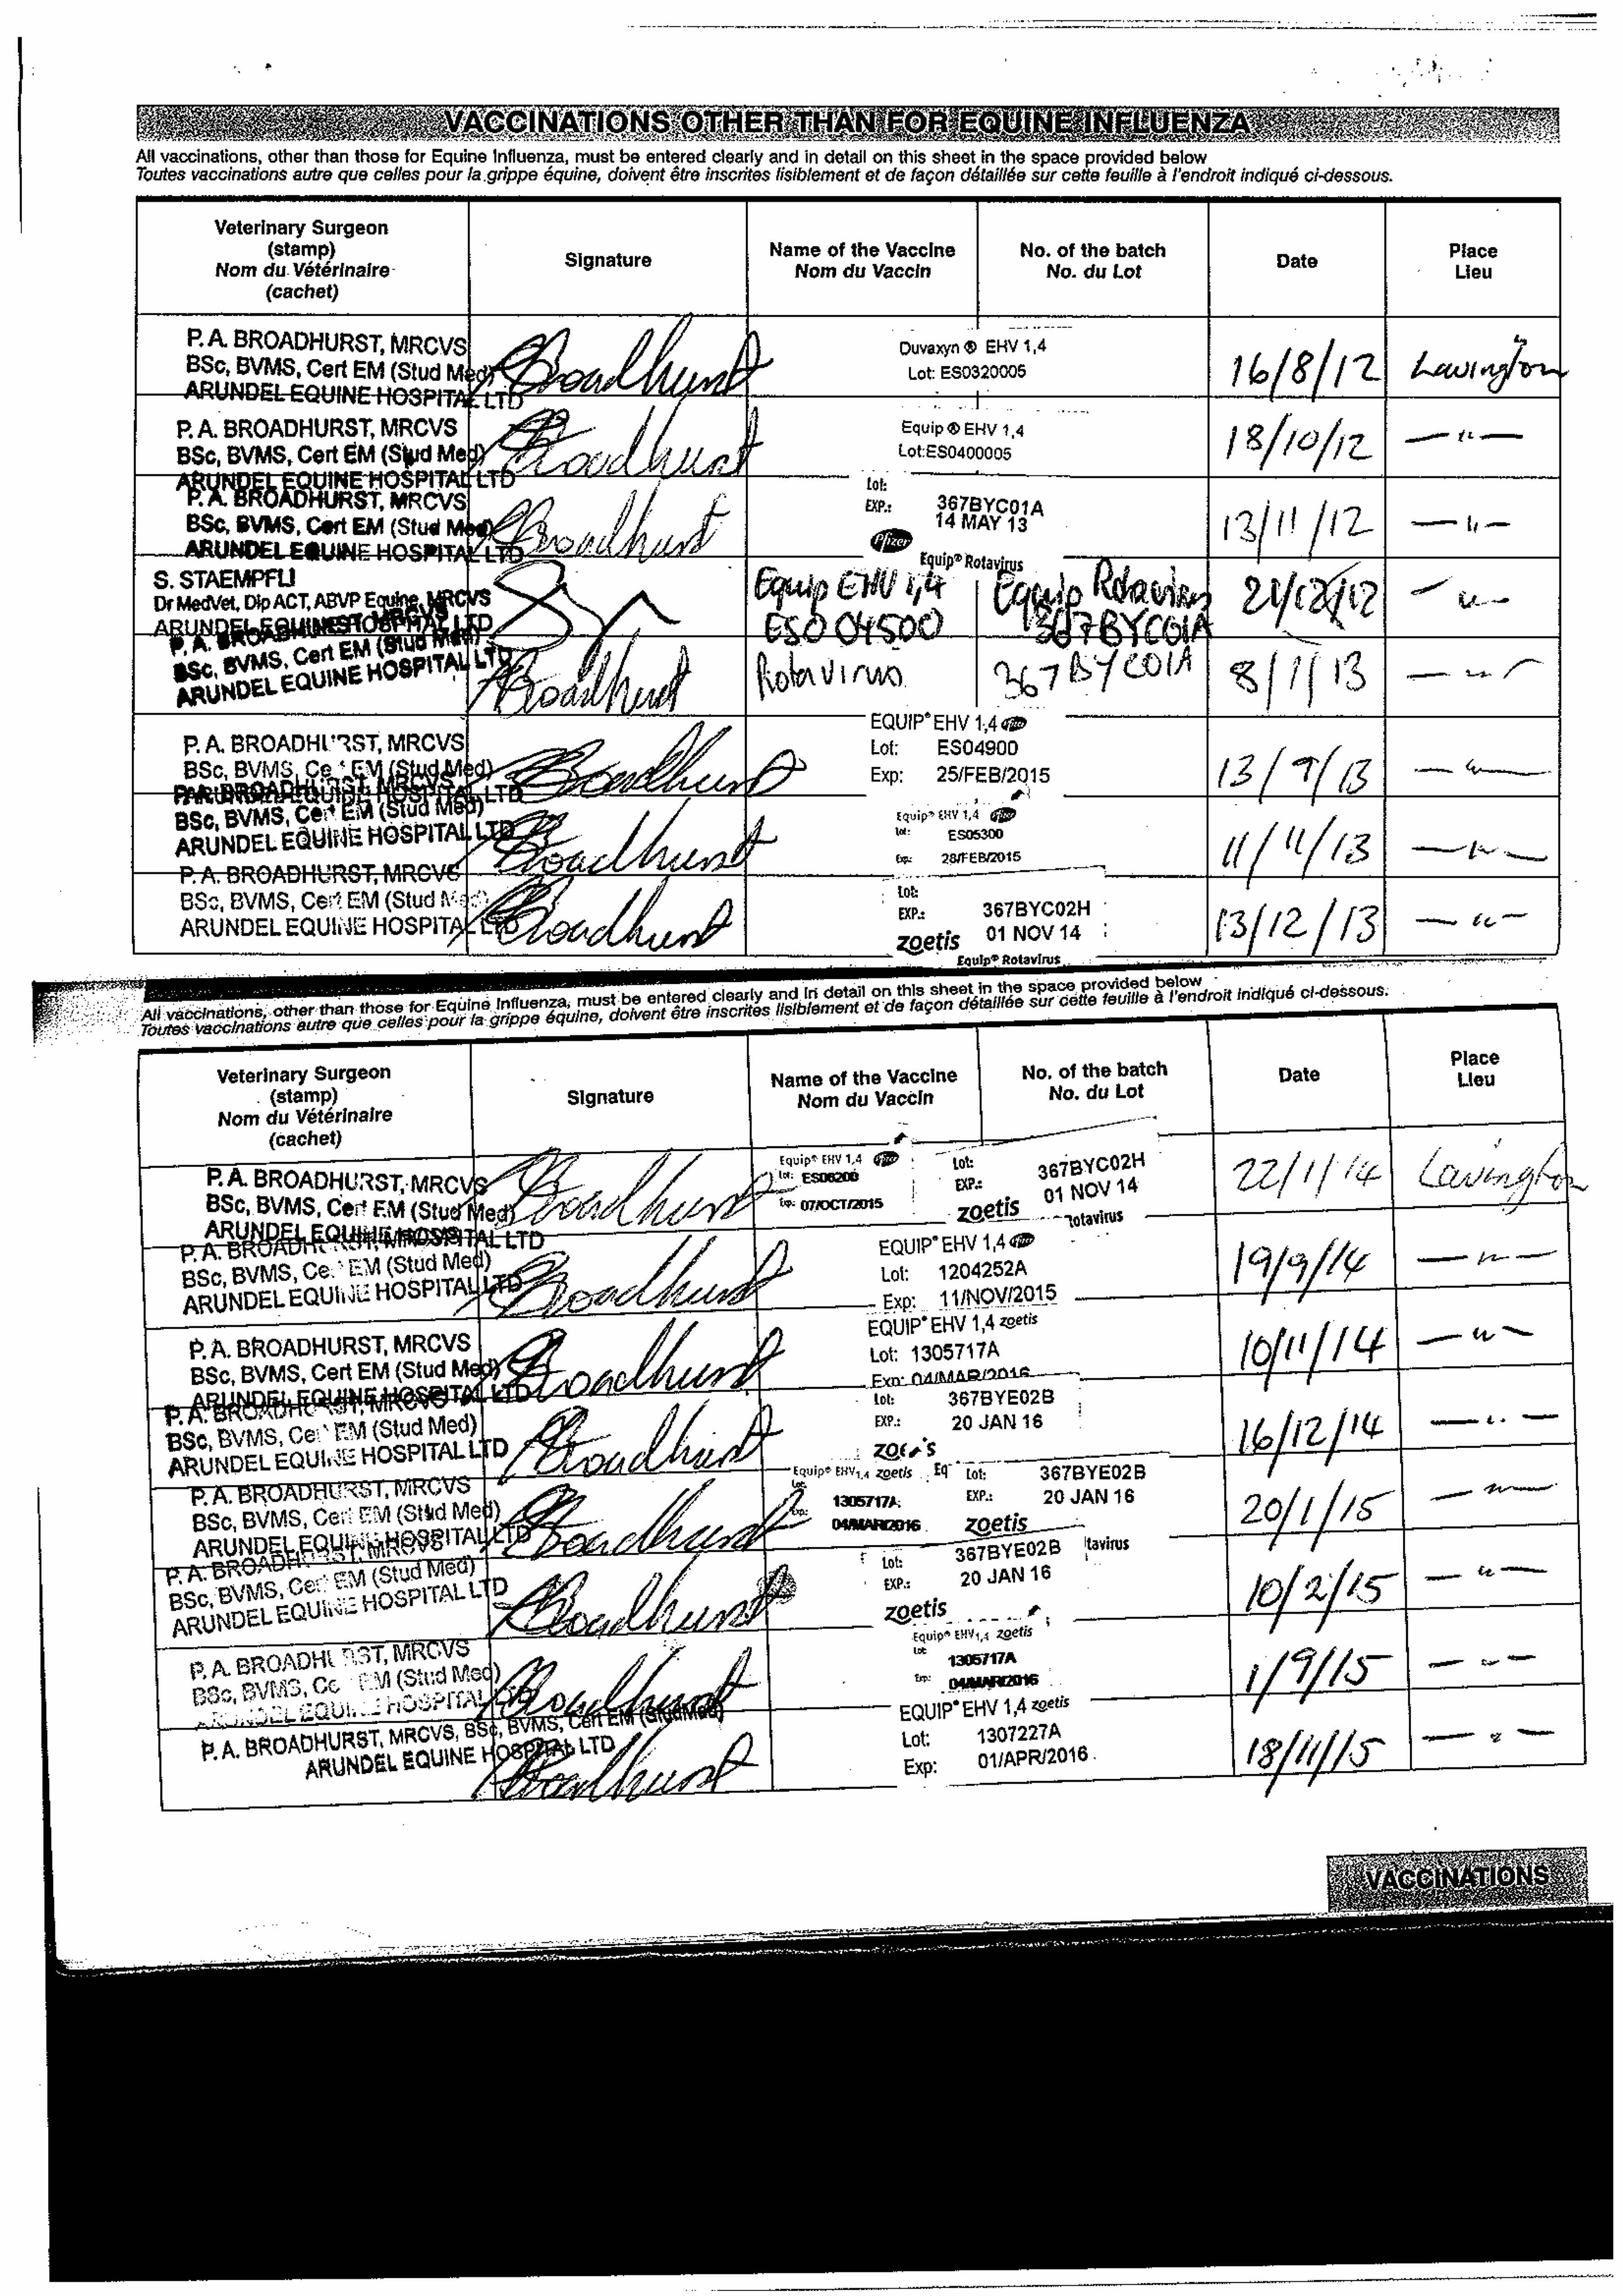 VACCINATIONS OTHER THAN FOR EQUINE INFLUENZA
All vaccinations, other than those for Equine Influenza, must be entered clearly and in detail on this sheet in the space provided below
Toutes vaccinations autre que celles pour la grippe équine, doivent être inscrites lisiblement et de façon détaillée sur cette feuille à l'endroit indiqué ci-dessous.
Veterinary Surgeon (stamp) Nom du Vétérinaire (cachet)
Signature
Name of the Vaccine Nom du Vaccin
No. of the batch No. du Lot
Date
Place Lieu
P. A. BROADHURST, MRCVS
BSc, BVMS, Cert EM (Stud Med)
ARUNDEL EQUINE HOSPITAL LTD
Broadhurst
Duvaxyn ® EHV 1,4
Lot: ES0320005
16/8/12
Lavington
P. A. BROADHURST, MRCVS
BSc, BVMS, Cert EM (Stud Med)
ARUNDEL EQUINE HOSPITAL LTD
Broadhurst
Equip ® EHV 1,4
Lot:ES0400005
18/10/12
— " —
P. A. BROADHURST, MRCVS
BSc, BVMS, Cert EM (Stud Med)
ARUNDEL EQUINE HOSPITAL LTD
Broadhurst
Lot:
EXP.: 367BYC01A
14 MAY 13
Pfizer
Equip® Rotavirus
13/11/12
— " —
S. STAEMPFLI
Dr MedVet, Dip ACT, ABVP Equine, MRCVS
ARUNDEL EQUINE HOSPITAL LTD
Equip EHV 1,4
ESO 04500
Equip Rotavirus
367BYC01A
21/12/12
— " —
P. A. BROADHURST, MRCVS
BSc, BVMS, Cert EM (Stud Med)
ARUNDEL EQUINE HOSPITAL LTD
Broadhurst
Rotavirus
367BYC01A
8/1/13
— " —
P. A. BROADHURST, MRCVS
BSc, BVMS, Cert EM (Stud Med)
ARUNDEL EQUINE HOSPITAL LTD
Broadhurst
EQUIP® EHV 1,4 Pfizer
Lot: ES04900
Exp: 25/FEB/2015
13/9/13
— " —
P. A. BROADHURST, MRCVS
BSc, BVMS, Cert EM (Stud Med)
ARUNDEL EQUINE HOSPITAL LTD
Broadhurst
Equip® EHV 1,4 Pfizer
Lot: ES05300
Exp: 28/FEB/2015
11/11/13
— " —
P. A. BROADHURST, MRCVS
BSc, BVMS, Cert EM (Stud Med)
ARUNDEL EQUINE HOSPITAL LTD
Broadhurst
Lot:
EXP.: 367BYC02H
01 NOV 14
zoetis
Equip® Rotavirus
13/12/13
— " —
All vaccinations, other than those for Equine Influenza, must be entered clearly and in detail on this sheet in the space provided below
Toutes vaccinations autre que celles pour la grippe équine, doivent être inscrites lisiblement et de façon détaillée sur cette feuille à l'endroit indiqué ci-dessous.
Veterinary Surgeon (stamp) Nom du Vétérinaire (cachet)
Signature
Name of the Vaccine Nom du Vaccin
No. of the batch No. du Lot
Date
Place Lieu
P. A. BROADHURST, MRCVS
BSc, BVMS, Cert EM (Stud Med)
ARUNDEL EQUINE HOSPITAL LTD
Broadhurst
Equip® EHV 1,4 Pfizer
Lot: ES06200
Exp: 07/OCT/2015
Lot: 367BYC02H
EXP.: 01 NOV 14
zoetis
Rotavirus
22/1/14
Lavington
P. A. BROADHURST, MRCVS
BSc, BVMS, Cert EM (Stud Med)
ARUNDEL EQUINE HOSPITAL LTD
Broadhurst
EQUIP® EHV 1,4 Pfizer
Lot: 1204252A
Exp: 11/NOV/2015
19/9/14
— " —
P. A. BROADHURST, MRCVS
BSc, BVMS, Cert EM (Stud Med)
ARUNDEL EQUINE HOSPITAL LTD
Broadhurst
EQUIP® EHV 1,4 zoetis
Lot: 1305717A
Exp: 04/MAR/2016
10/11/14
— " —
P. A. BROADHURST, MRCVS
BSc, BVMS, Cert EM (Stud Med)
ARUNDEL EQUINE HOSPITAL LTD
Broadhurst
Lot: 367BYE02B
EXP.: 20 JAN 16
zoetis
16/12/14
— " —
P. A. BROADHURST, MRCVS
BSc, BVMS, Cert EM (Stud Med)
ARUNDEL EQUINE HOSPITAL LTD
Broadhurst
Equip® EHV1,4 zoetis
Lot: 1305717A
Exp: 04/MAR/2016
Eq
Lot: 367BYE02B
EXP.: 20 JAN 16
zoetis
tavirus
20/1/15
— " —
P. A. BROADHURST, MRCVS
BSc, BVMS, Cert EM (Stud Med)
ARUNDEL EQUINE HOSPITAL LTD
Broadhurst
Lot: 367BYE02B
EXP.: 20 JAN 16
zoetis
10/2/15
— " —
P. A. BROADHURST, MRCVS
BSc, BVMS, Cert EM (Stud Med)
ARUNDEL EQUINE HOSPITAL
Broadhurst
Equip® EHV1,4 zoetis
Lot: 1305717A
Exp: 04/MAR/2016
1/9/15
— " —
P. A. BROADHURST, MRCVS, BSc, BVMS, Cert EM (StudMed)
ARUNDEL EQUINE HOSPITAL LTD
Broadhurst
EQUIP® EHV 1,4 zoetis
Lot: 1307227A
Exp: 01/APR/2016
18/11/15
— " —
VACCINATIONS